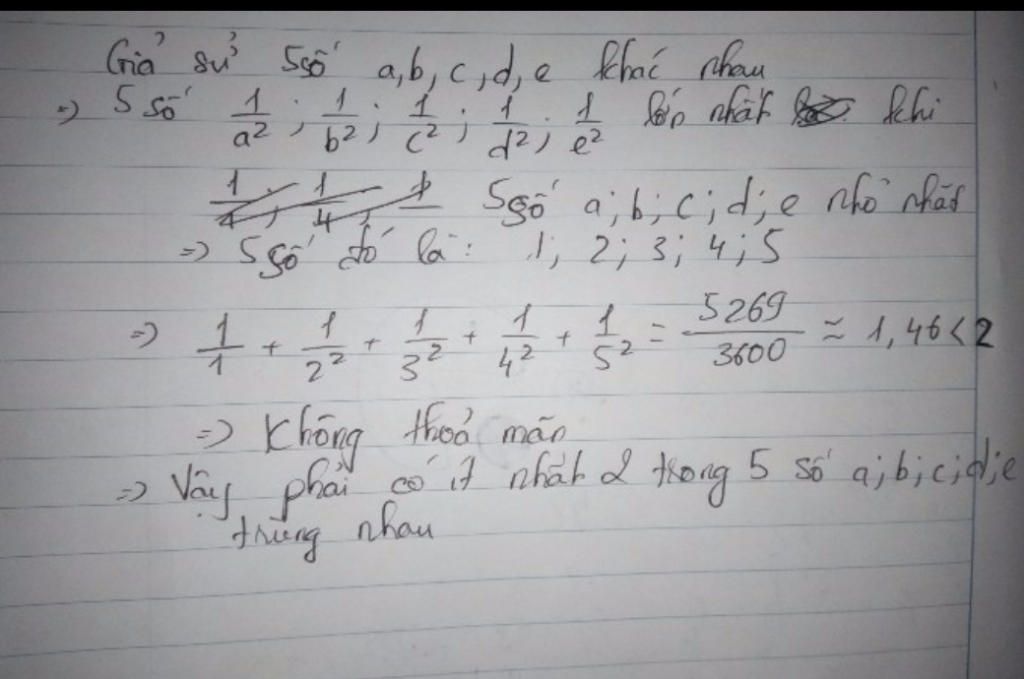 Giả sử 5 số a, b, c, d, e khác nhau
=> 5 số 1/a² ; 1/b² ; 1/c² ; 1/d² ; 1/e² lớn nhất khi
5 số a; b; c; d; e nhỏ nhất
=> 5 số đó là: 1; 2; 3; 4; 5
=> 1/1 + 1/2² + 1/3² + 1/4² + 1/5² = 5269/3600 ≈ 1,46 < 2
=> Không thoả mãn
=> Vậy phải có ít nhất 2 trong 5 số a; b; c; d; e
trùng nhau